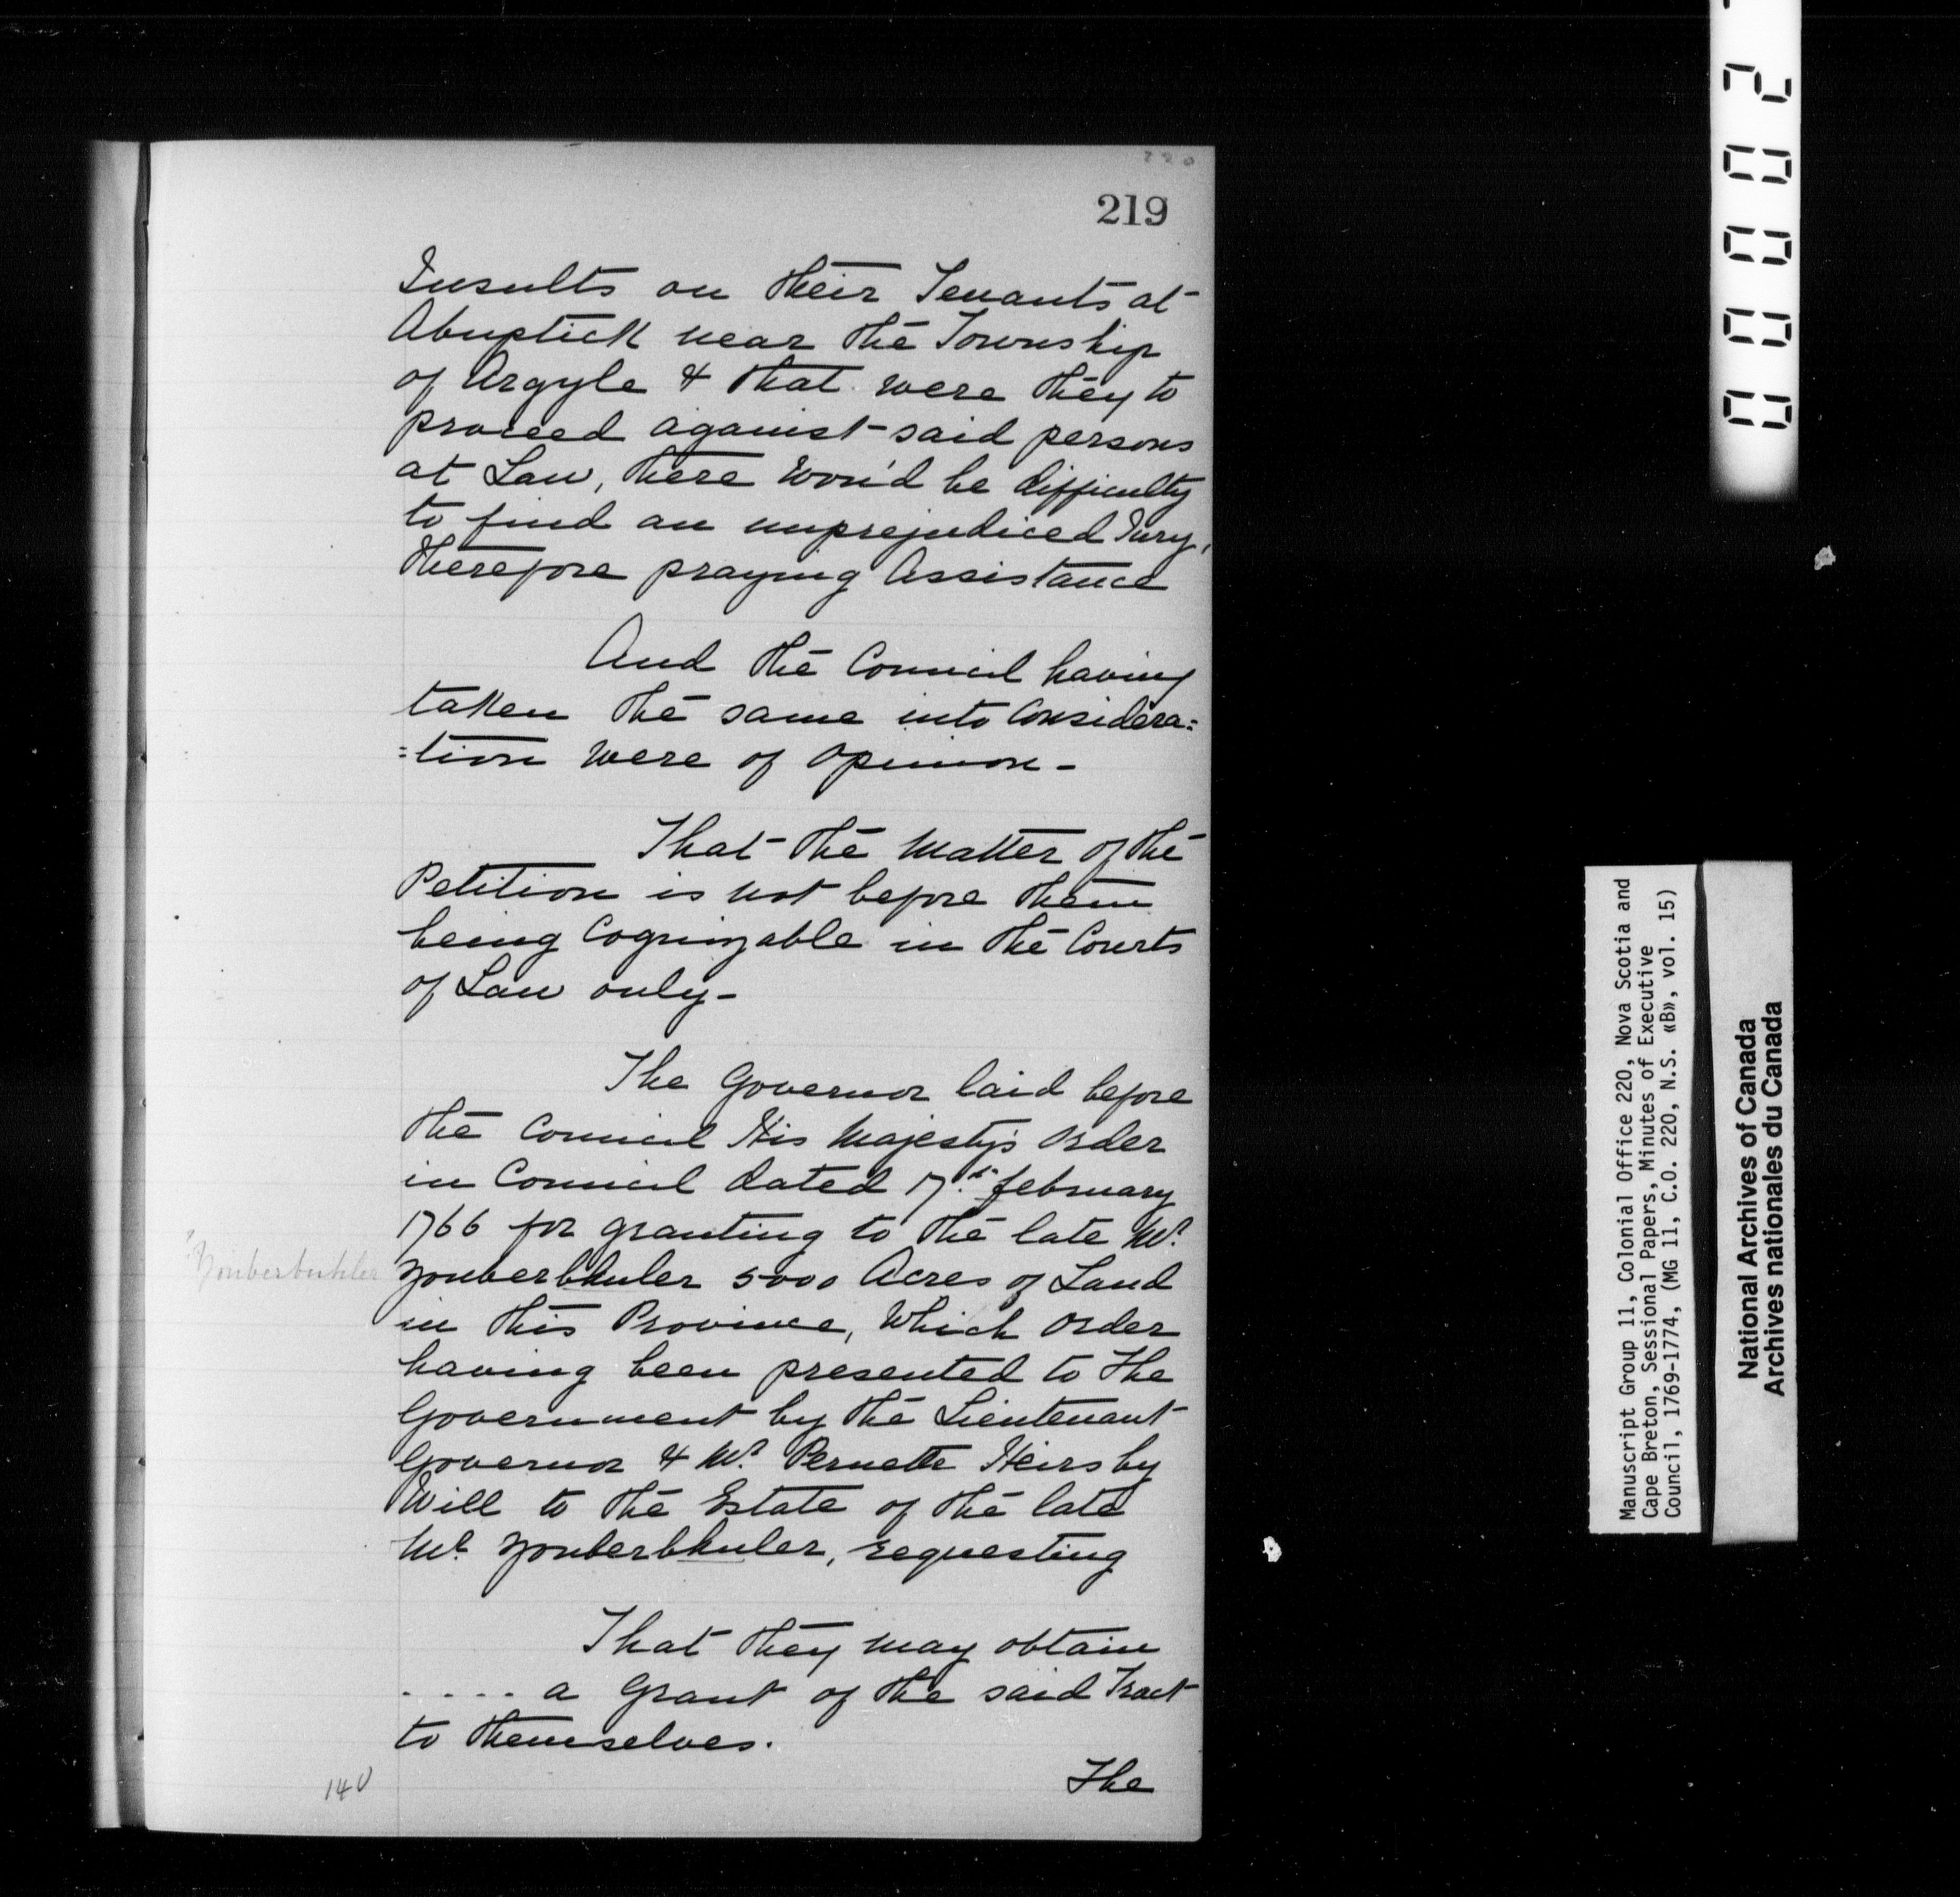 220
219
Insults on their Tenants at
Abuptick near the Township
of Argyle & that were they to
proceed against said persons
at Law, there wou'd be difficulty
to find an unprejudiced Jury,
therefore praying Assistance
And the Council having
taken the same into Considera=
=tion were of Opinion -
That the Matter of the
Petition is not before them
being Cognizable in the Courts
of Law only -
The Governor laid before
the Council His Majesty's Order
in Council dated 17.th february
1766 for granting to the late Mr.
Zouberbhuler 5000 Acres of Land
in this Province, Which Order
having been presented to the
Government by the Lieutenant
Governor & Mr. Pernette Heirs by
Will to the Estate of the late
Mr. Zouberbhuler, requesting
That they may obtain
..... a Grant of the said Tract
to themselves.
The
Zouberbuhler
140
0 0 0 0 2
Manuscript Group 11, Colonial Office 220, Nova Scotia and
Cape Breton, Sessional Papers, Minutes of Executive
Council, 1769-1774, (MG 11, C.O. 220, N.S. «B», vol. 15)
National Archives of Canada
Archives nationales du Canada